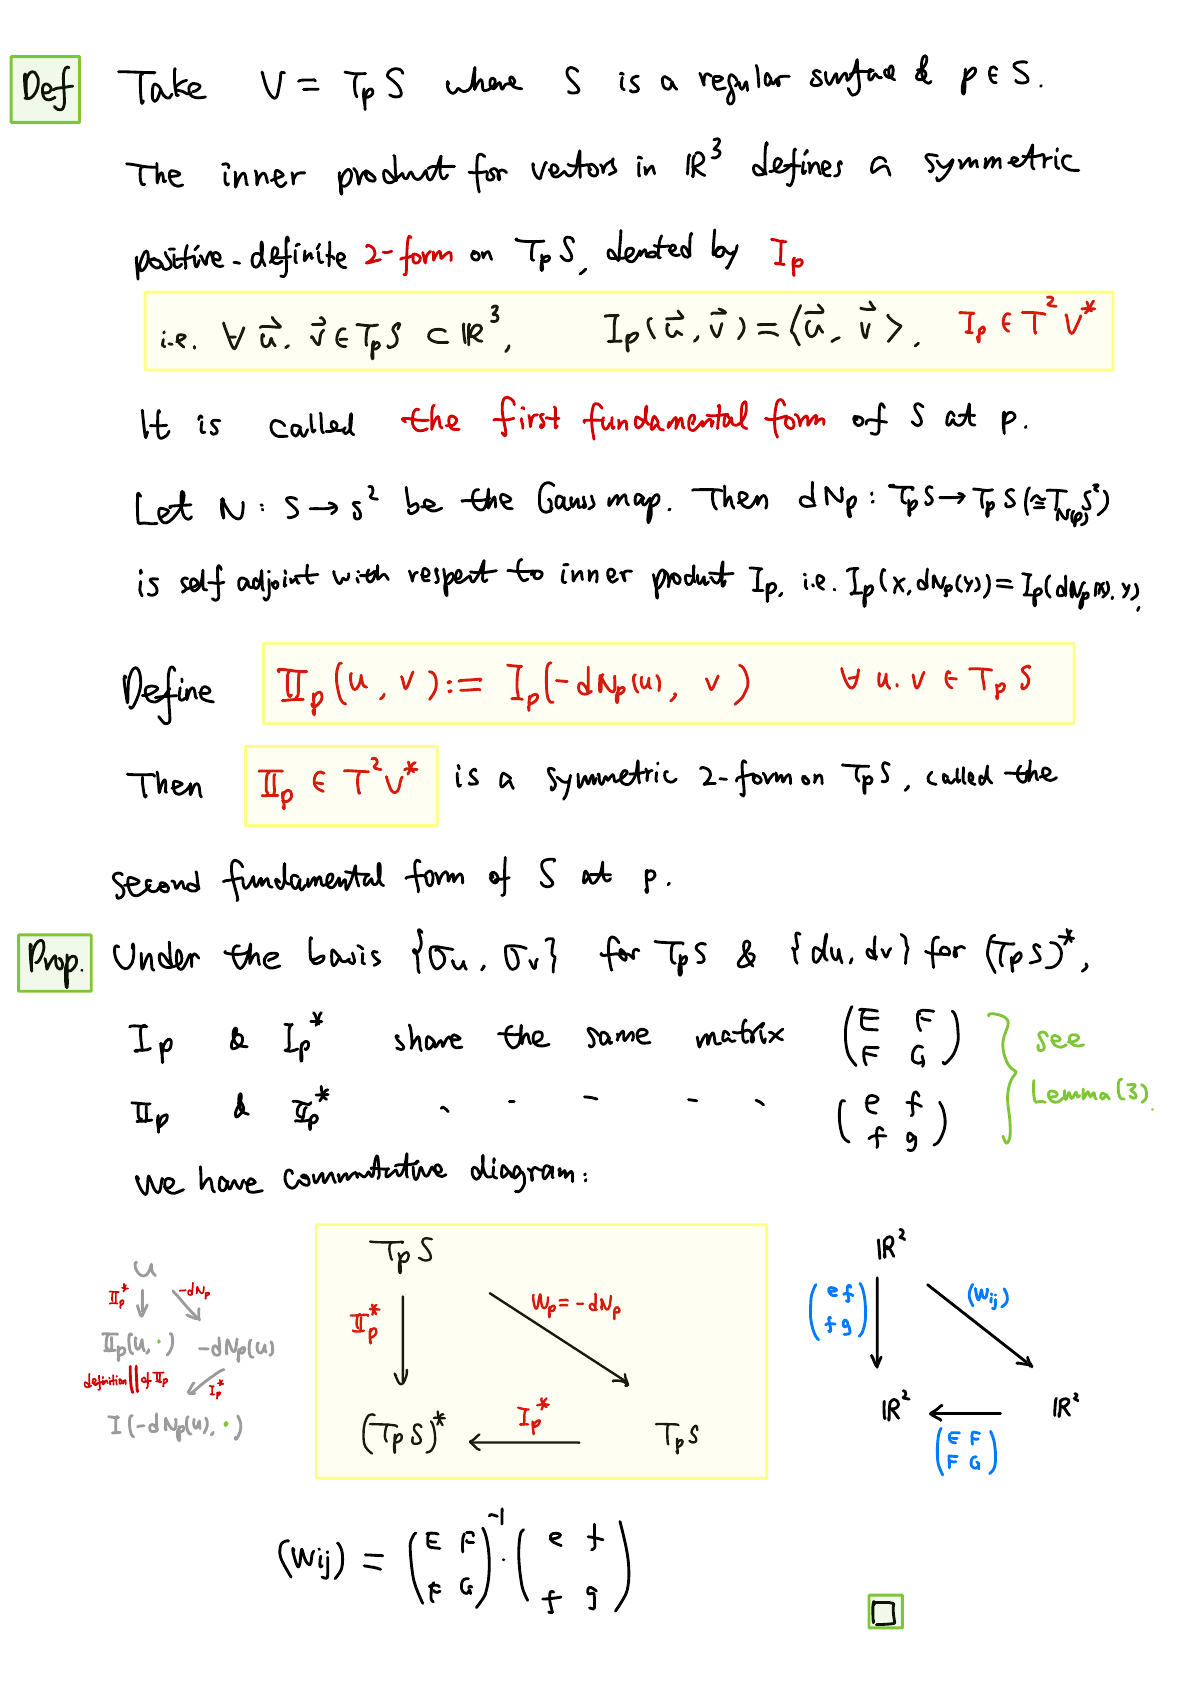 Def Take V = TpS where S is a regular surface & p ∈ S.
The inner product for vectors in ℝ³ defines a symmetric
positive-definite 2-form on TpS, denoted by Ip
i.e. ∀ u⃗, v⃗ ∈ TpS ⊂ ℝ³, Ip(u⃗, v⃗) = ⟨u⃗, v⃗⟩. Ip ∈ T²V*
It is called the first fundamental form of S at p.
Let N : S → S² be the Gauss map. Then dNp : TpS → TpS (≅ T_N(p) S²)
is self adjoint with respect to inner product Ip, i.e. Ip(x, dNp(y)) = Ip(dNp(x), y),
Define IIp(u, v) := Ip(-dNp(u), v) ∀ u, v ∈ TpS
Then IIp ∈ T²V* is a symmetric 2-form on TpS, called the
second fundamental form of S at p.
Prop. Under the basis {σu, σv} for TpS & {du, dv} for (TpS)*,
Ip & Ip* share the same matrix (E F
F G)
see
Lemma(3).
IIp & IIp* - - - - - (e f
f g)
we have commutative diagram:
u
IIp* -dNp
IIp(u, ·) -dNp(u)
definition || of IIp Ip*
I(-dNp(u), ·)
TpS
IIp* Wp = -dNp
Ip*
(TpS)* TpS
ℝ²
(e f
f g) (Wij)
ℝ² ℝ²
(E F
F G)
(Wij) = (E F
F G)⁻¹ · (e f
f g)
□